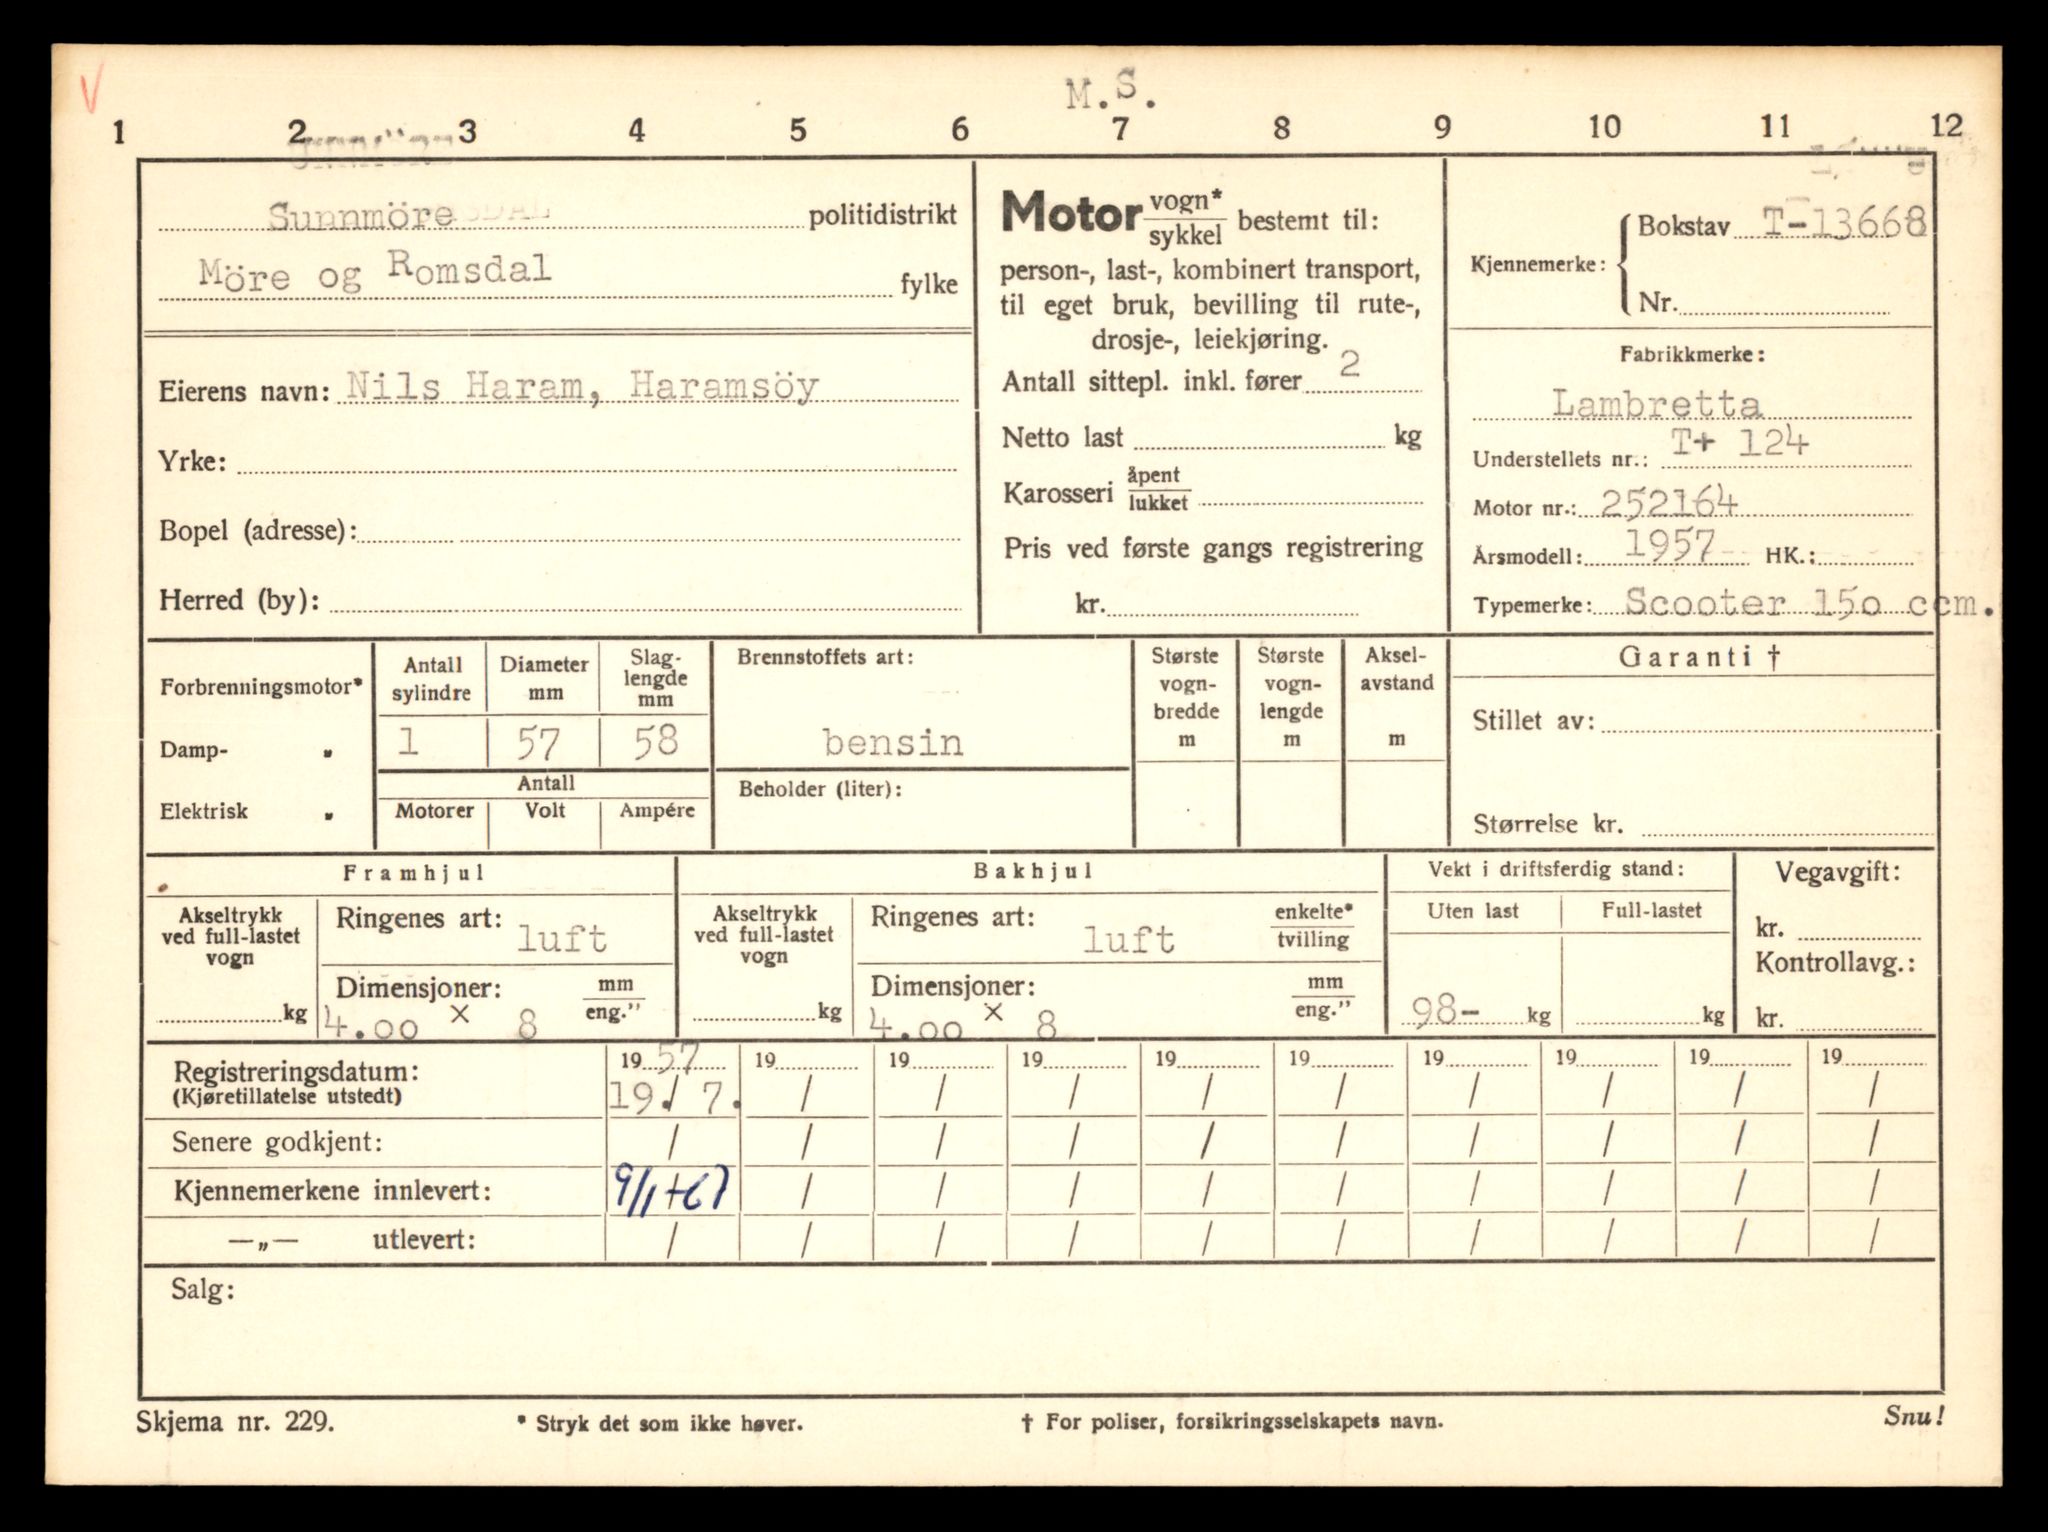 V
M.S.
1 2 3 4 5 6 7 8 9 10 11 12
Sunnmöre politidistrikt
Möre og Romsdal fylke
Eierens navn: Nils Haram, Haramsöy
Yrke:
Bopel (adresse):
Herred (by):
Motor vogn*/sykkel bestemt til:
person-, last-, kombinert transport,
til eget bruk, bevilling til rute-,
drosje-, leiekjøring.
Antall sittepl. inkl. fører 2
Netto last kg
Karosseri åpent/lukket
Pris ved første gangs registrering
kr.
Kjennemerke: Bokstav T-13668
Nr.
Fabrikkmerke:
Lambretta
Understellets nr.: T+ 124
Motor nr.: 252164
Årsmodell: 1957 HK.:
Typemerke: Scooter 150 ccm.
Forbrenningsmotor*
Damp- "
Elektrisk "
Antall sylindre
1
Diameter mm
57
Slag-lengde mm
58
Antall
Motorer Volt Ampére
Brennstoffets art:
bensin
Beholder (liter):
Største vogn-bredde m
Største vogn-lengde m
Aksel-avstand m
Garanti †
Stillet av:
Størrelse kr.
Framhjul
Akseltrykk ved full-lastet vogn
kg
Ringenes art: luft
Dimensjoner: mm/eng."
4.00 x 8
Bakhjul
Akseltrykk ved full-lastet vogn
kg
Ringenes art: luft enkelte*/tvilling
Dimensjoner: mm/eng."
4.00 x 8
Vekt i driftsferdig stand:
Uten last Full-lastet
98- kg kg
Vegavgift:
kr.
Kontrollavg.:
kr.
Registreringsdatum: 1957 19 19 19 19 19 19 19 19 19
(Kjøretillatelse utstedt) 19./ 7. / / / / / / / / /
Senere godkjent: / / / / / / / / / /
Kjennemerkene innlevert: 9/1-67 / / / / / / / / /
—„— utlevert: / / / / / / / / / /
Salg:
Skjema nr. 229. * Stryk det som ikke høver. † For poliser, forsikringsselskapets navn. Snu!